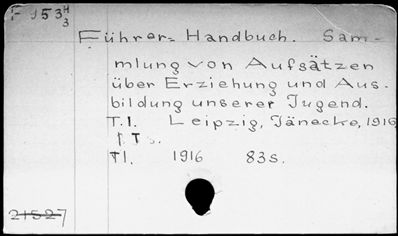 F 953 H/3
Führer-Handbuch. Sam-
mlung von Aufsätzen
über Erziehung und Aus-
bildung unserer Jugend.
T.1. Leipzig, Jänecke, 1916
1 T s.
T1. 1916 83s.
21527